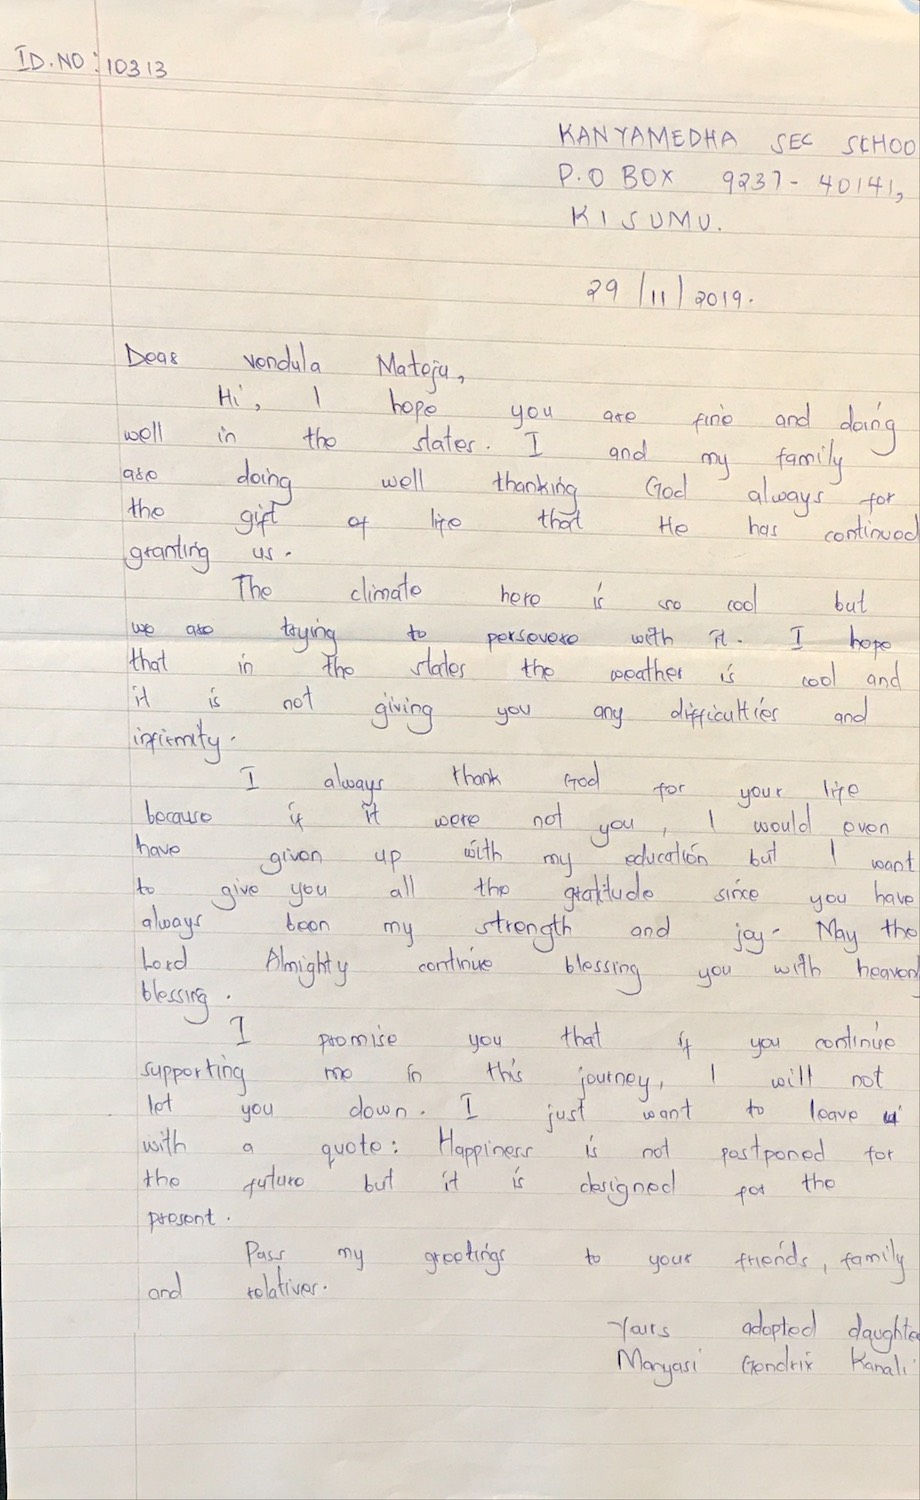 ID.NO: 10313
KANYAMEDHA SEC SCHOO
P.O BOX 9237 - 40141,
KISUMU.
29/11/2019.
Dear Vendula Mateju,
Hi, I hope you are fine and doing
well in the states. I and my family
are doing well thanking God always for
the gift of life that He has continued
granting us.
The climate here is so cool but
we are trying to persevere with it. I hope
that in the states the weather is cool and
it is not giving you any difficulties and
infirmity.
I always thank God for your life
because if it were not you, I would even
have given up with my education but I want
to give you all the gratitude since you have
always been my strength and joy. May the
Lord Almighty continue blessing you with heaven
blessing.
I promise you that if you continue
supporting me in this journey, I will not
let you down. I just want to leave u
with a quote: Happiness is not postponed for
the future but it is designed for the
present.
Pass my greetings to your friends, family
and relatives.
Yours adopted daughte
Maryasi Gendrix Kanali